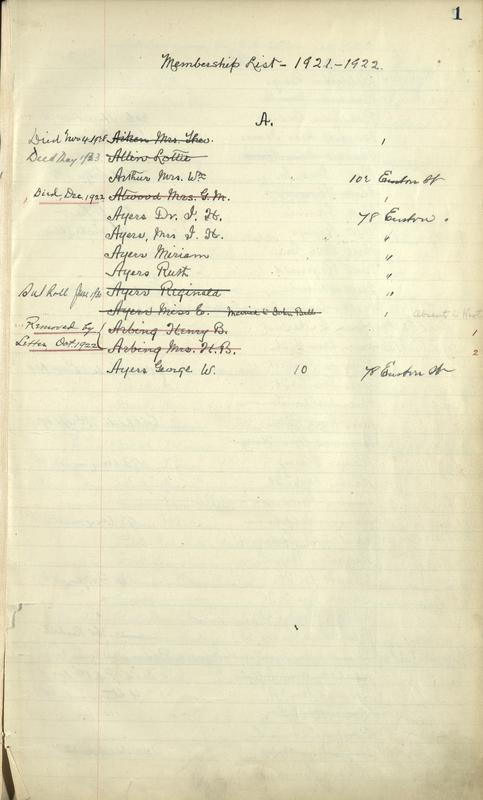 1
Membership List - 1921-1922.
A.
Died Nov 4 1928 Aitken Mrs. Theo.
Died May 1933 Allin Lottie
Arthur Mrs. Wm 102 Euston St
Died, Dec. 1922 Atwood Mrs. G. M.
Ayers Dr. I. H. 78 Euston
Ayers, Mrs I. H. "
Ayers Miriam "
Ayers Ruth "
Roll June Ayers Reginald "
Ayers Miss E. Married to John Absent
Removed by Arbing Henry B. 1
Letter Oct. 1922 Arbing Mrs. H. B. 2
Ayers George W. 10 78 Euston St